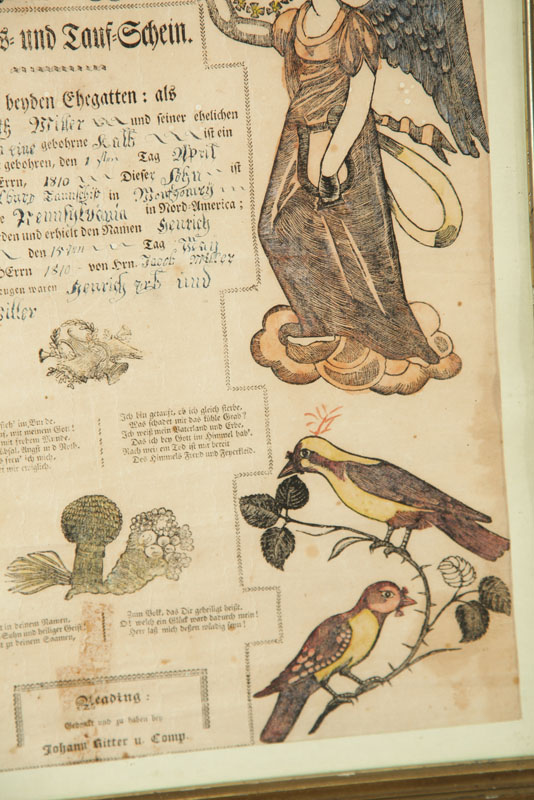 und Tauf-Schein.
beyden Ehegatten: als
Miller und seiner ehelichen
gebohrne Kuth ist ein
gebohren, den 1 sten Tag April
Errn, 1810 Dieser Sohn ist
Taunschip in Montgomery
Pennsylvania in Nord-Amerika;
und erhielt den Namen Henrich
den 15 ten Tag May
HErrn 1810 von Hrn. Jacob Miller
waren Henrich Erb und
Miller
im Bunde.
mit meinem Gott!
mit frohem Munde.
Angst und Noth.
ich mich.
mir ewiglich.
Ich bin getauft, ob ich gleich sterbe,
Was schadet mir das kühle Grab?
Ich weiß mein Vaterland und Erbe,
Das ich bey Gott im Himmel hab'.
Nach meinem Tod ist mir bereit
Des Himmels Freud und Feyerkleid.
in deinem Namen,
Sohn und heiliger Geist,
zu deinem Saamen,
Zum Volk, das Dir geheiligt heißt.
O! welch ein Glück ward dadurch mein!
Herr laß mich dessen würdig seyn!
Reading:
Gedruckt und zu haben bey
Johann Ritter u. Comp.